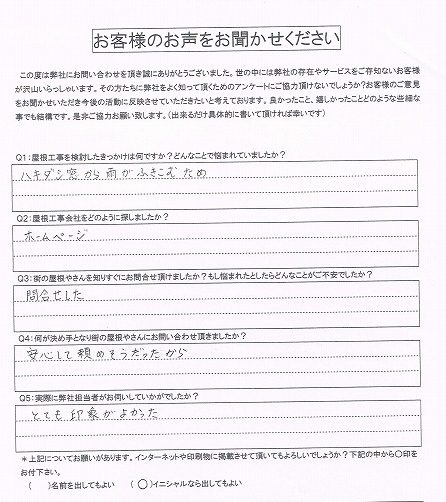 お客様のお声をお聞かせください
この度は弊社にお問い合わせを頂き誠にありがとうございました。世の中には弊社の存在やサービスをご存知ないお客様
が沢山いらっしゃいます。その方たちに弊社をよく知って頂くためのアンケートにご協力頂けないでしょうか?お客様のご意見
をお聞かせいただき今後の活動に反映させていただきたいと考えております。良かったこと、嬉しかったことどのような些細な
事でも結構です。是非ご協力お願い致します。(出来るだけ具体的に書いて頂ければ幸いです)
Q1:屋根工事を検討したきっかけは何ですか?どんなことで悩まれていましたか?
ハキダシ窓から雨がふきこむため
Q2:屋根工事会社をどのように探しましたか?
ホームページ
Q3:街の屋根やさんを知りすぐにお問合せ頂けましたか?もし悩まれたとしたらどんなことがご不安でしたか?
問合せした
Q4:何が決め手となり街の屋根やさんにお問い合わせ頂きましたか?
安心して頼めそうだったから
Q5:実際に弊社担当者がお伺いしていかがでしたか?
とても印象がよかった
*上記についてお願いがあります。インターネットや印刷物に掲載させて頂いてもよろしいでしょうか?下記の中から〇印を
お付下さい。
( )名前を出してもよい (〇)イニシャルなら出してもよい